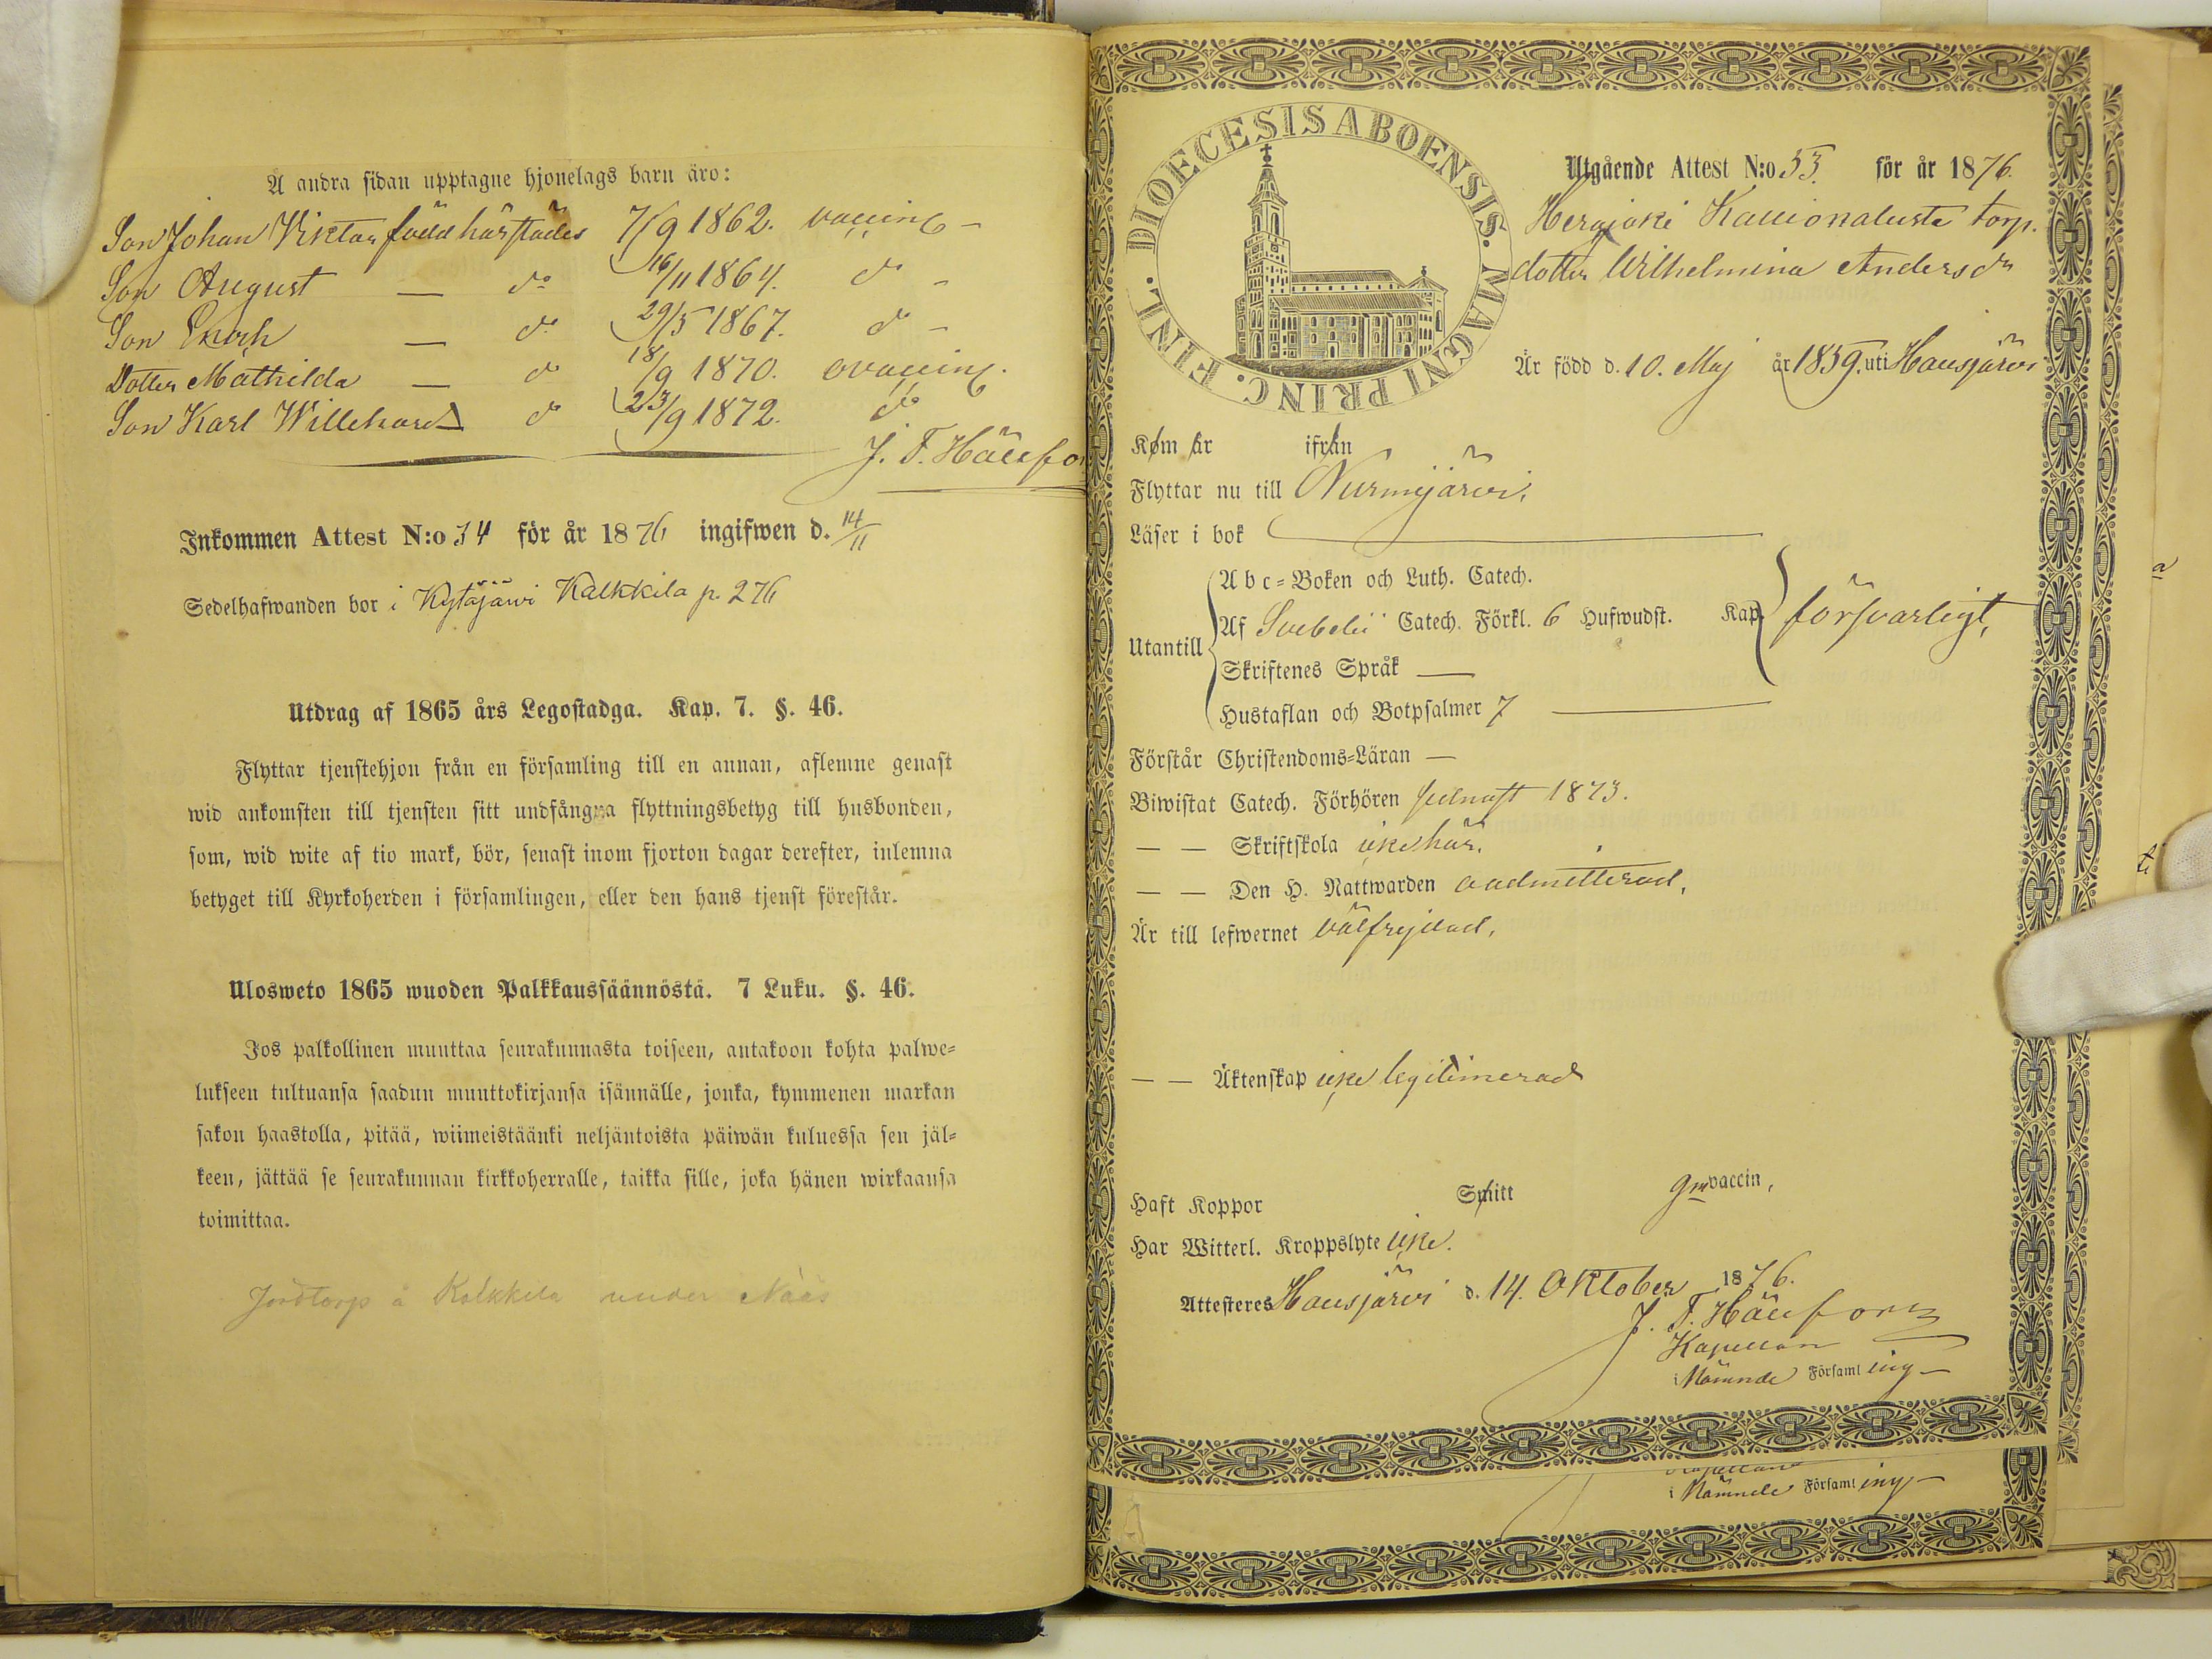 Å andra sidan upptagne hjonelags barn äro:
Son Johan Viktor född härstädes 7/9 1862. vaccin.
Son August — do 16/11 1864. do -
Son Enoch — do 29/5 1867. do -
Dotter Mathilda — do 18/9 1870. ovaccin.
Son Karl Willehard do 23/9 1872. do
J. F. Hällfo
Inkommen Attest N:o 34 för år 1876 ingifwen d. 14/11
Sedelhafwanden bor i Kytäjärvi Kalkkila p. 276
Utdrag af 1865 års Legostadga. Kap. 7. §. 46.
Flyttar tjenstehjon från en församling till en annan, aflemne genast
wid ankomsten till tjensten sitt undfångna flyttningsbetyg till husbonden,
som, wid wite af tio mark, bör, senast inom fjorton dagar derefter, inlemna
betyget till Kyrkoherden i församlingen, eller den hans tjenst förestår.
Ulosweto 1865 wuoden Palkkaussäännöstä. 7 Luku. §. 46.
Jos palkollinen muuttaa seurakunnasta toiseen, antakoon kohta palwe-
lukseen tultuansa saadun muuttokirjansa isännälle, jonka, kymmenen markan
sakon haastolla, pitää, wiimeistäänki neljäntoista päiwän kuluessa sen jäl-
keen, jättää se seurakunnan kirkkoherralle, taikka sille, joka hänen wirkaansa
toimittaa.
Jordtorp å Kalkkila under Nääs
DIOECESIS ABOENSIS. MAGNI PRINC. FINL.
Utgående Attest N:o 53. för år 1876.
Herajoki torp.
dotter Wilhelmina Andersdr
Är född d. 10. Maj år 1859. uti Hausjärvi
Kom år ifrån
Flyttar nu till Nurmijärvi.
Läser i bok
Abc-Boken och Luth. Catech.
Utantill Af Svebelii Catech. Förkl. 6 Hufwudst. Kap. försvarligt,
Skriftenes Språk —
Hustaflan och Botpsalmer 7
Förstår Christendoms-Läran —
Biwistat Catech. Förhören sednast 1873.
— — Skriftskola icke här.
— — Den H. Nattwarden oadmitterad.
Är till lefwernet välfrejdad.
— — Äktenskap icke legitimerad
Haft Koppor Smitt gm vaccin,
Har Witterl. Kroppslyte icke.
Attesteres Hausjärvi d. 14. Oktober 1876.
J. F. Hällfors
Kapellan
i Nämnde Församling —
Kapellan
i Nämnde Församling —